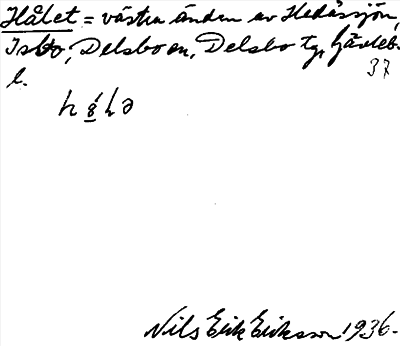 Hålet = västra änden av Hedåssjön,
Isbo, Delsbo sn, Delsbo tg, Gävleb.
l.
37
Nils Erik Eriksson 1936.